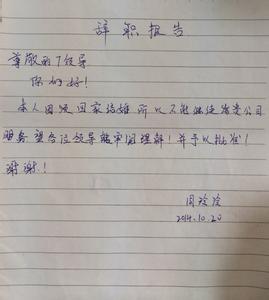 辞职报告
尊敬的领导
你们好!
本人因须回家结婚所以不能继续为贵公司
服务.望各位领导能牢固理解!并予以批准!
谢谢.!
周玲玲
2014.10.20